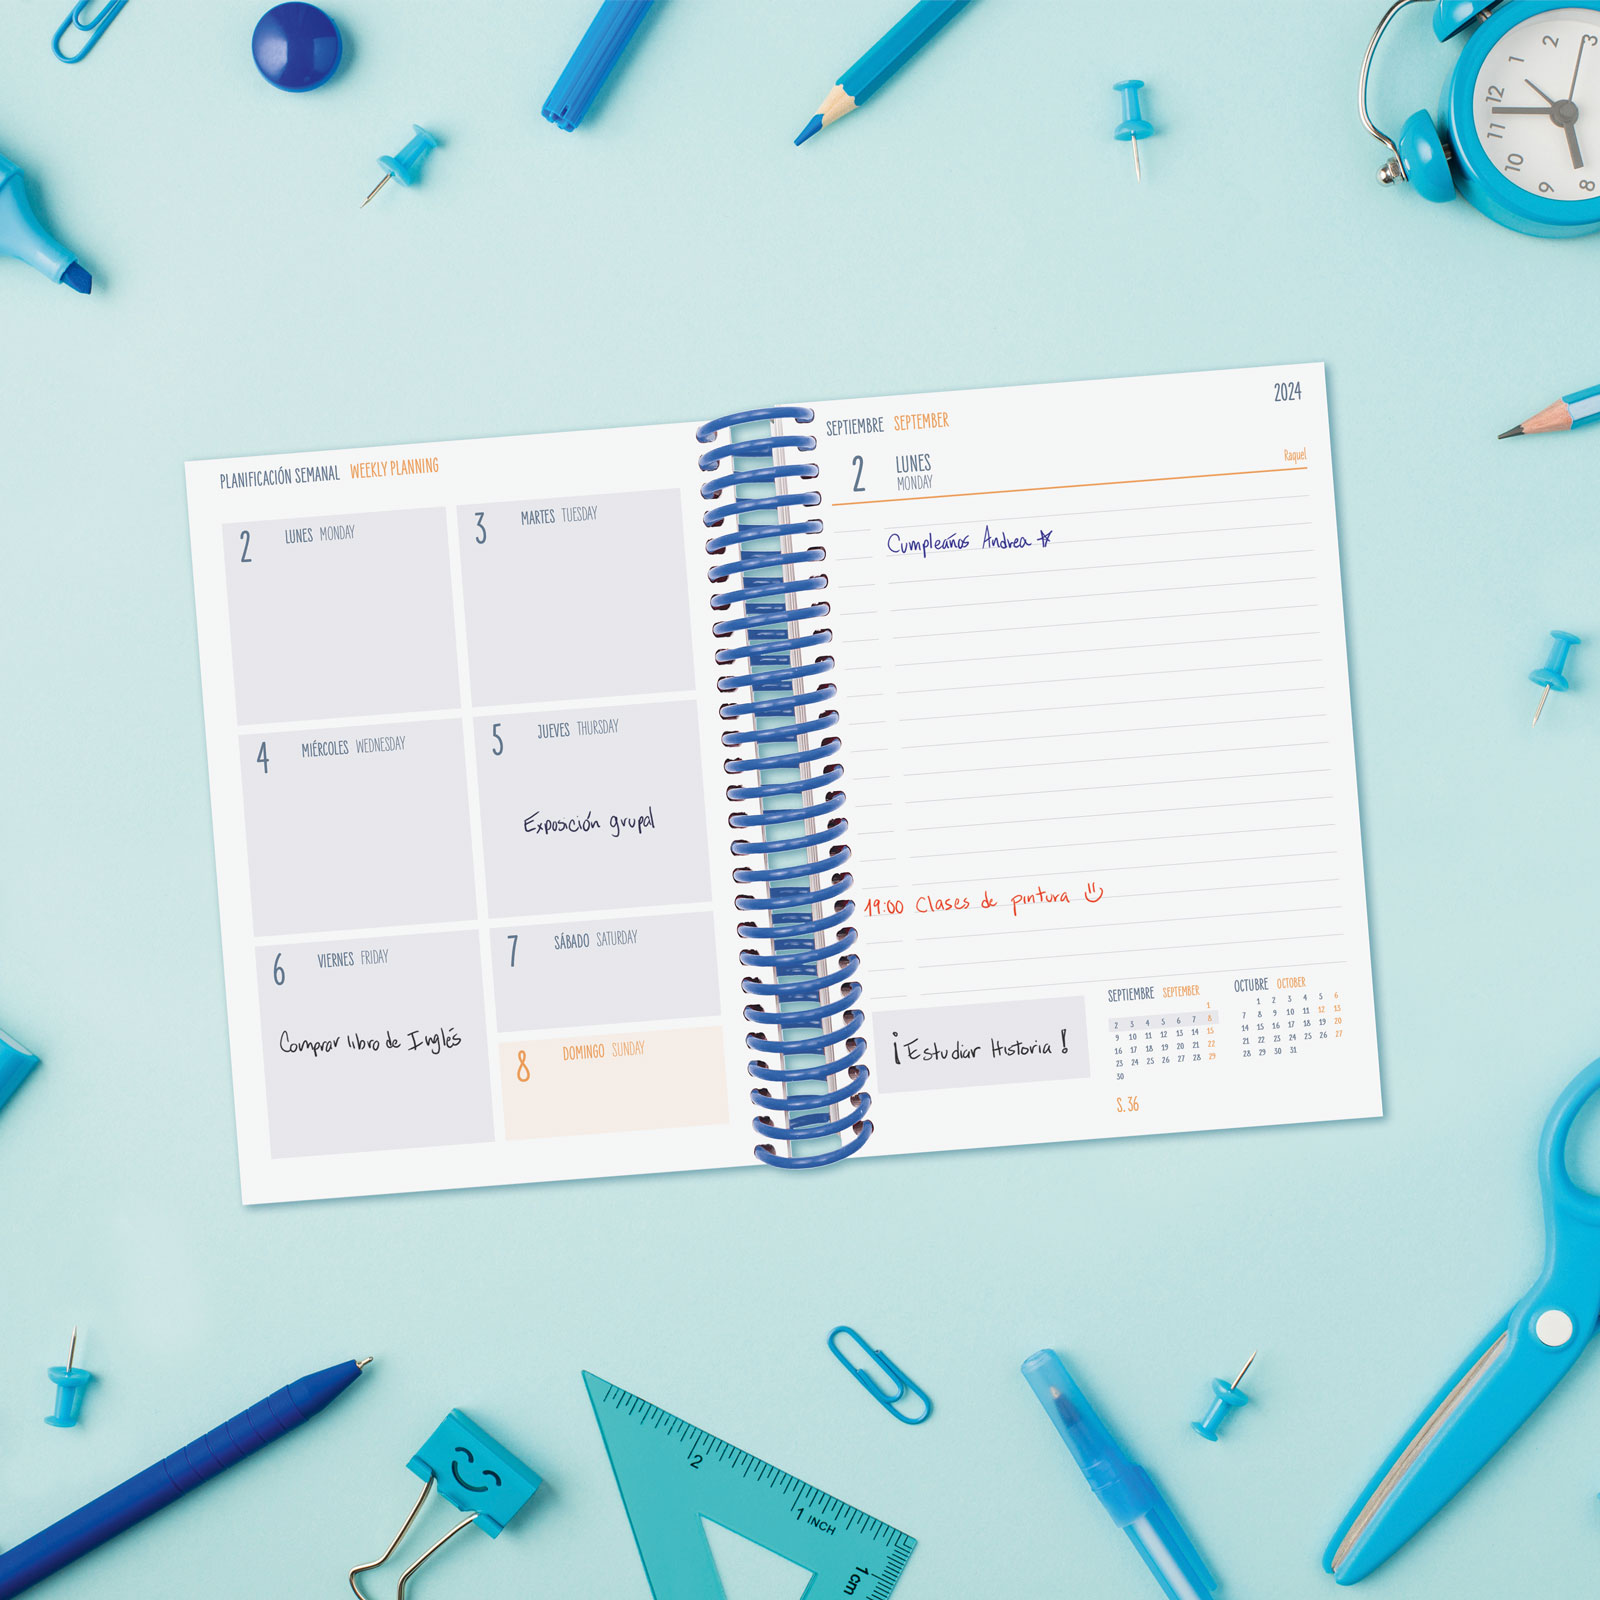 PLANIFICACIÓN SEMANAL WEEKLY PLANNING
2 LUNES MONDAY
3 MARTES TUESDAY
4 MIÉRCOLES WEDNESDAY
5 JUEVES THURSDAY
Exposición grupal
6 VIERNES FRIDAY
Comprar libro de Inglés
7 SÁBADO SATURDAY
8 DOMINGO SUNDAY
2024
SEPTIEMBRE SEPTEMBER
2 LUNES
MONDAY
Raquel
Cumpleaños Andrea
19:00 Clases de pintura
¡Estudiar Historia!
SEPTIEMBRE SEPTEMBER
1
2 3 4 5 6 7 8
9 10 11 12 13 14 15
16 17 18 19 20 21 22
23 24 25 26 27 28 29
30
S. 36
OCTUBRE OCTOBER
1 2 3 4 5 6
7 8 9 10 11 12 13
14 15 16 17 18 19 20
21 22 23 24 25 26 27
28 29 30 31
12
1
2
3
8
9
10
11
2
1 INCH
1 cm